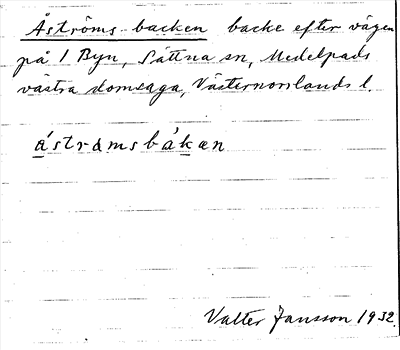 Åströms backen backe efter vägen
på 1 Byn, Sättna sn, Medelpads
västra domsaga, Västernorrlands l.
åstrɑmsbàkæn
Valter Jansson 1932.